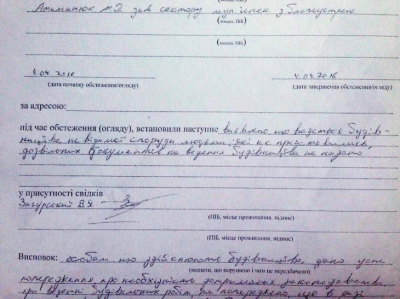 Атаманюк М.Я. зав. сектору муп "інсп. з благоустрою
(посада, ПІБ)
(посада, ПІБ)
4.04.2016 4.04.2016
(дата початку обстеження/огляду) (дата завершення обстеження/огляду)
за адресою:
під час обстеження (огляду), встановили наступне виявлено що ведеться будів-
ництво не відомої споруди людьми які не представились,
дозвільних документів на ведення будівництва не надано
у присутності свідків
Загурський В.Я.
(ПІБ, місце проживання, підпис)
(ПІБ, місце проживання, підпис)
Висновок: особам що здійснюють будівництво, дано усне
(вказати, що порушено і чим не передбачено)
попередження про необхідність дотримання законодавства
при веденні будівельних робіт, та попереджено, що в разі